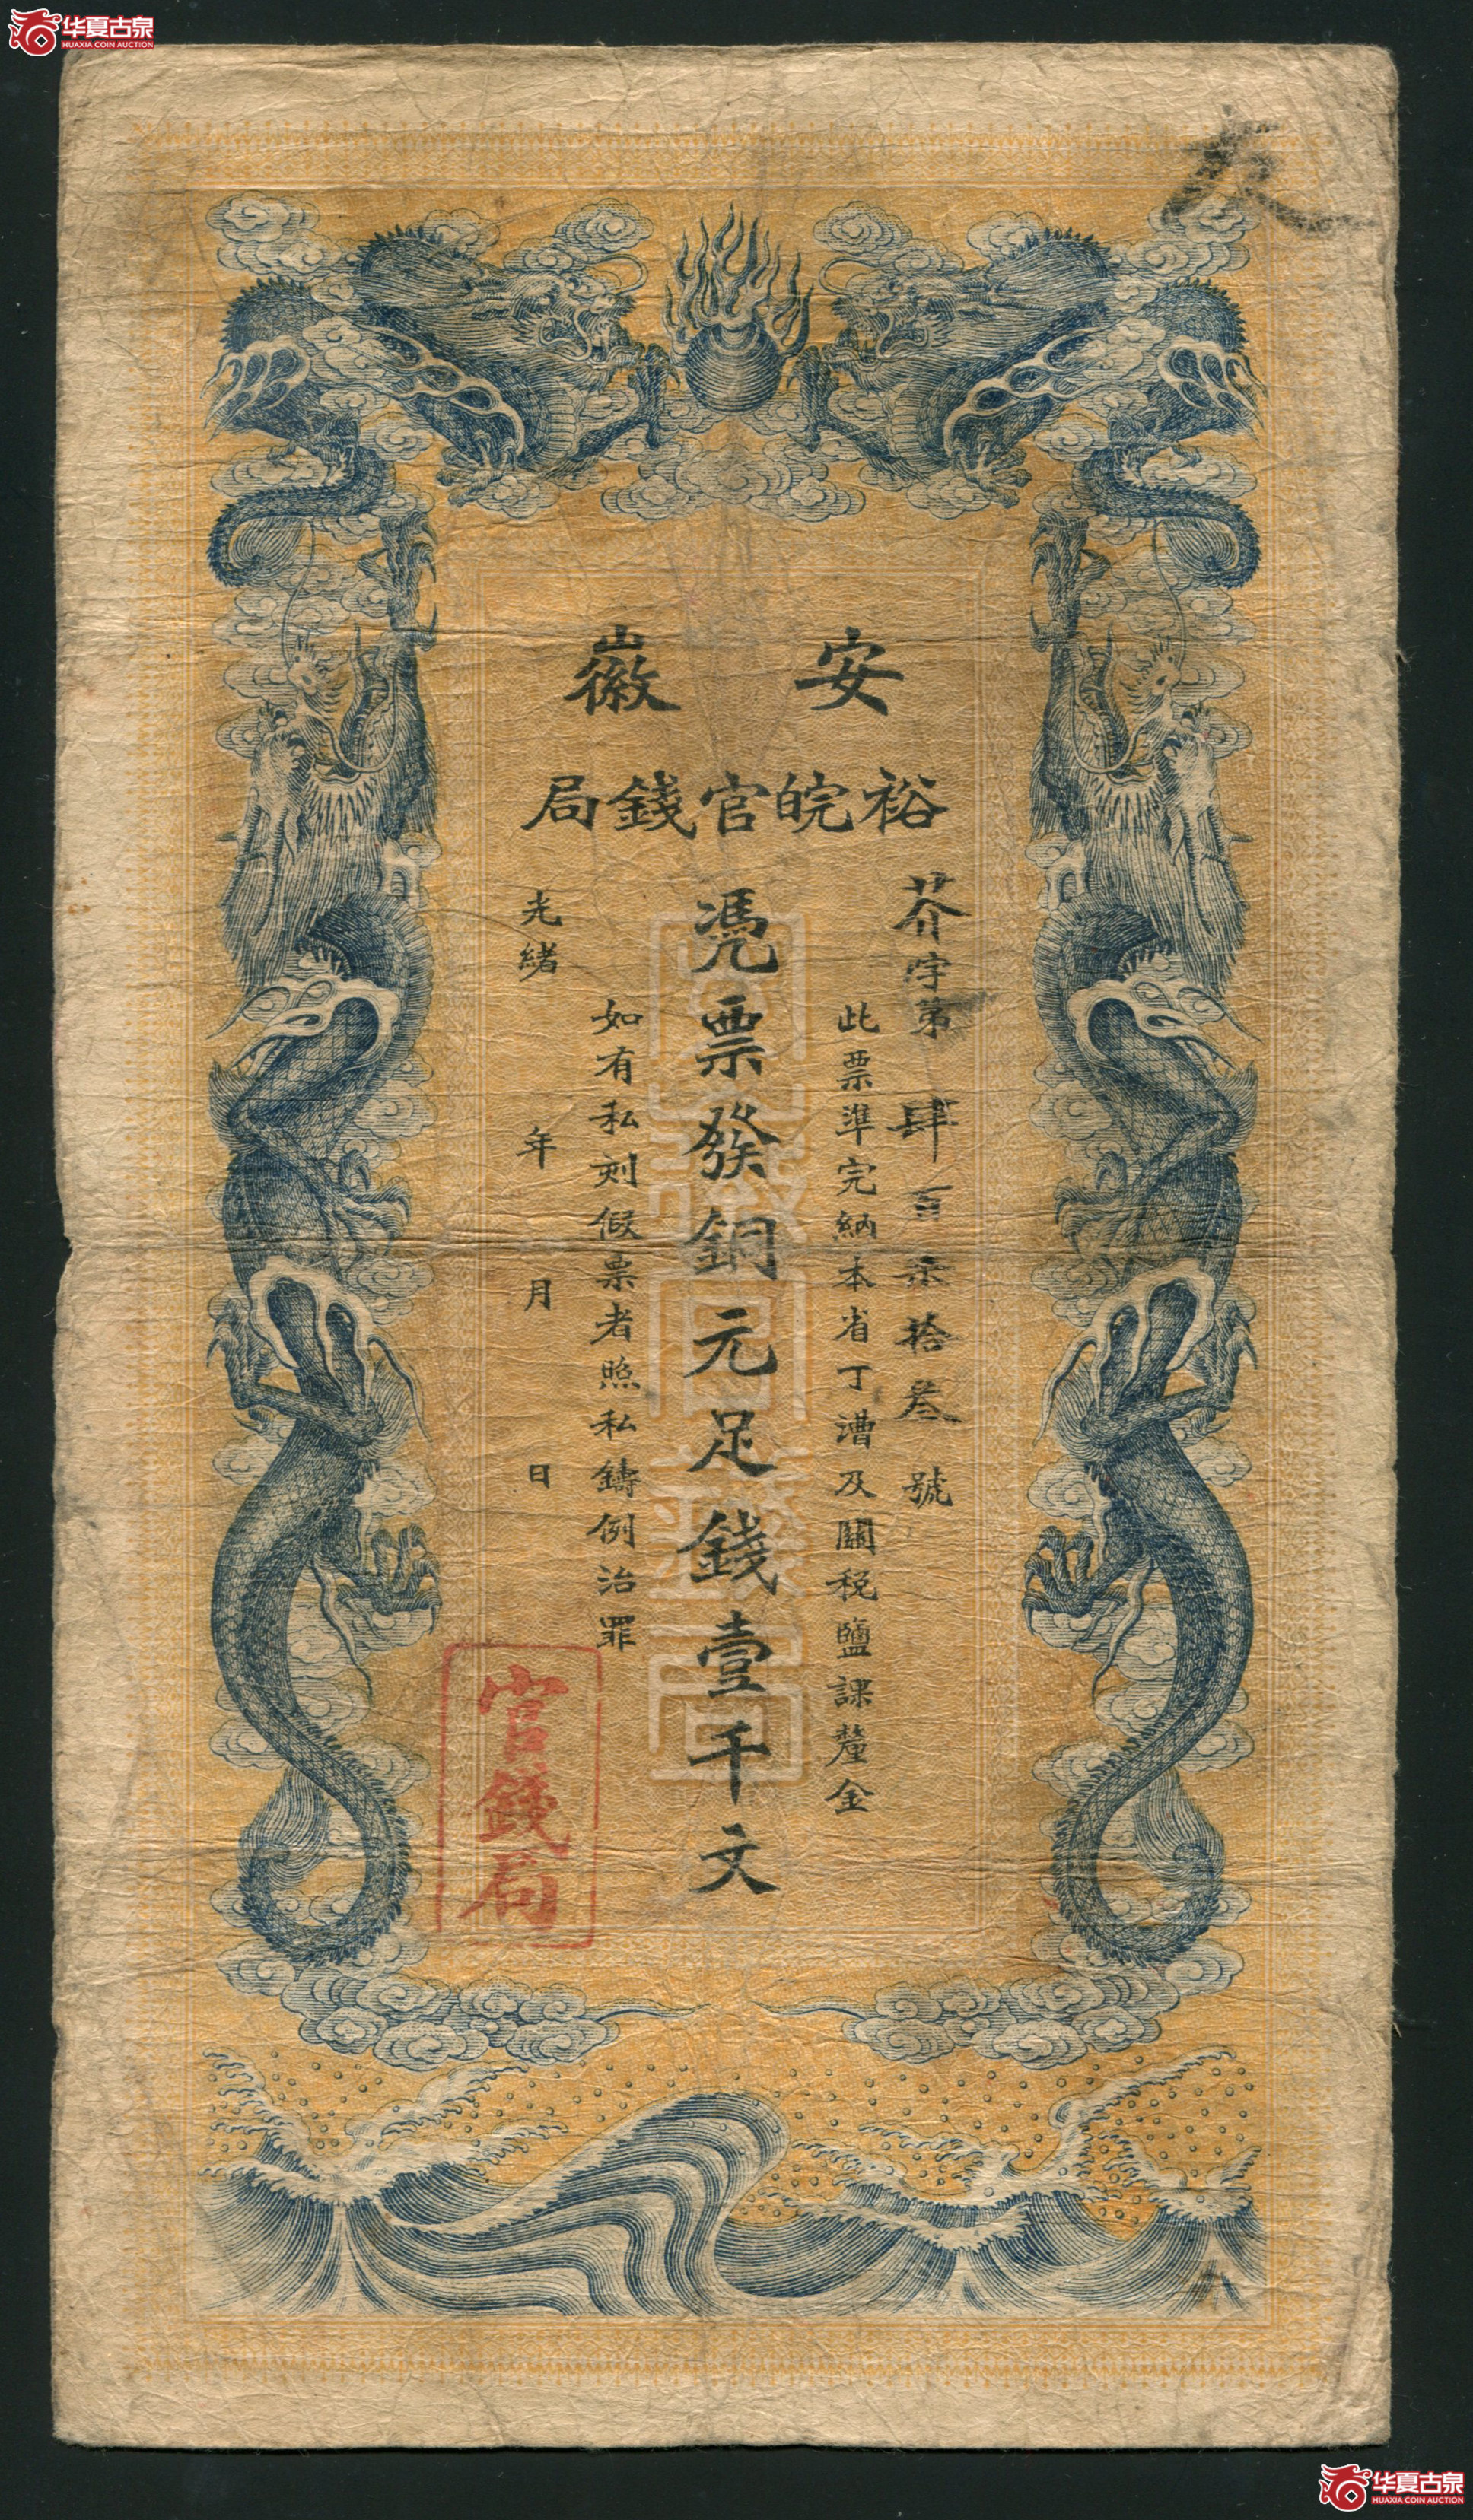 华夏古泉
HUAXIA COIN AUCTION
安徽
裕皖官錢局
芥字第肆百柒拾叁號
此票準完納本省丁漕及關稅鹽課釐金
憑票發銅元足錢壹千文
如有私刻假票者照私鑄例治罪
光緒年月日
官錢局
华夏古泉
HUAXIA COIN AUCTION